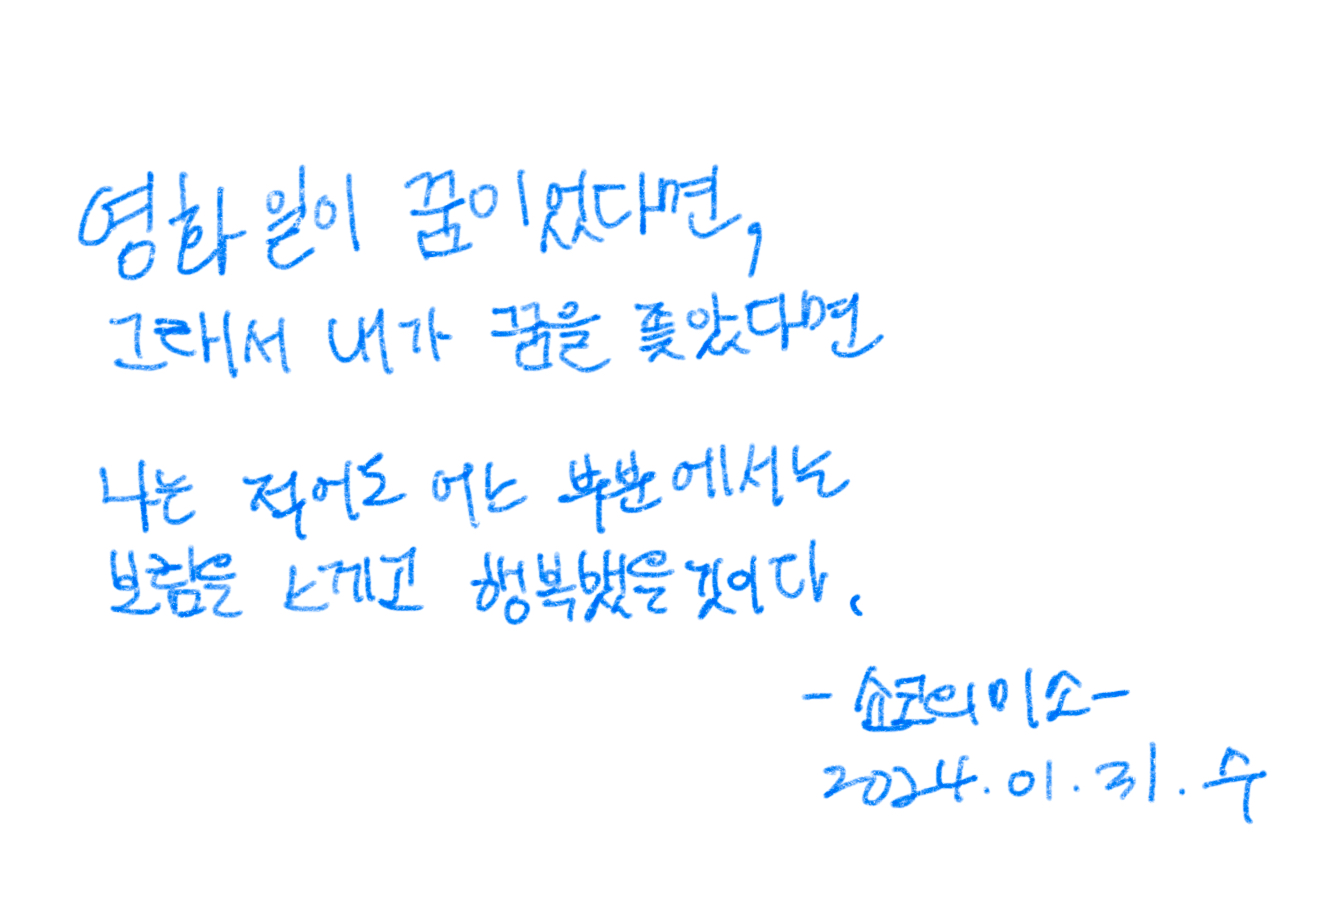 영화 일이 꿈이었다면,
그래서 내가 꿈을 좇았다면
나는 적어도 어느 부분에서는
보람을 느게고 행복했을 것이다.
- 쇼코의 미소 -
2024. 01. 31. 수